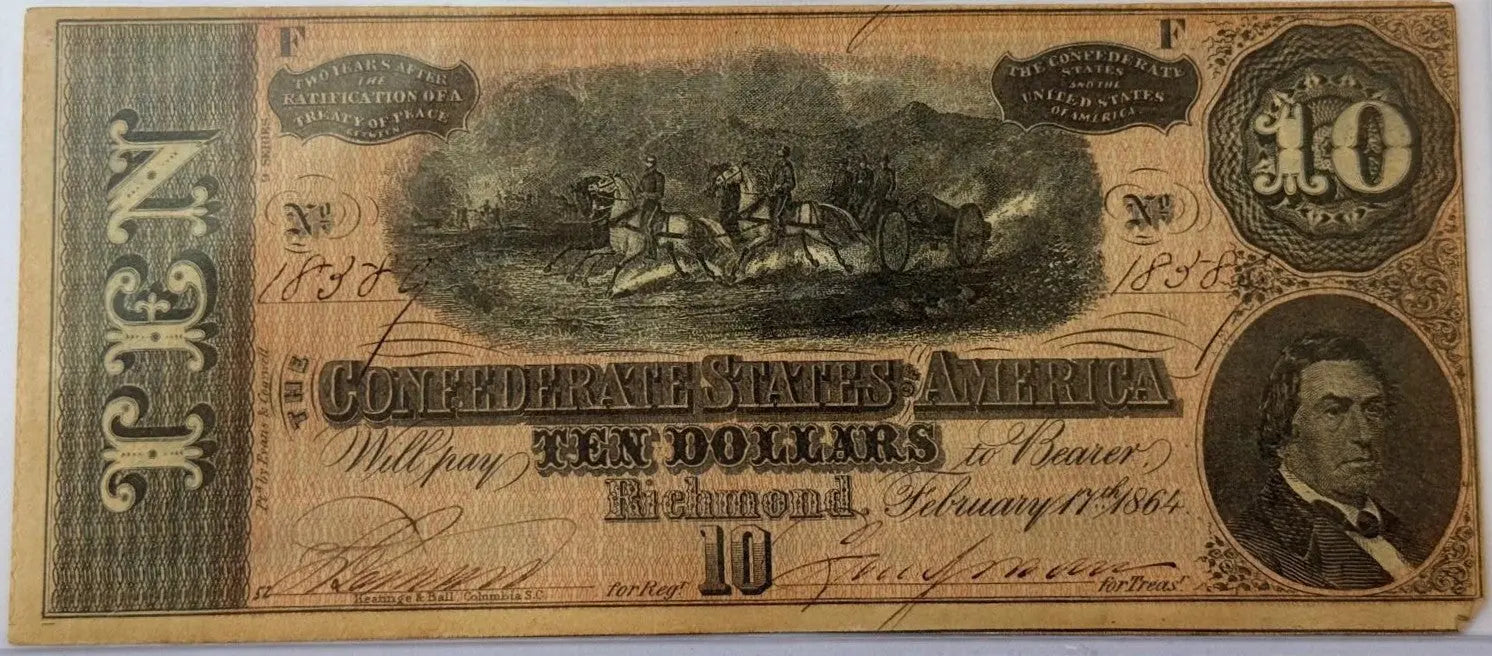 F
F
TWO YEARS AFTER
THE
RATIFICATION OF A
TREATY OF PEACE
BETWEEN
THE CONFEDERATE
STATES
AND THE
UNITED STATES
OF AMERICA
10
TEN
Nº
Nº
THE
CONFEDERATE STATES OF AMERICA
Will pay TEN DOLLARS to Bearer,
Richmond, February 17th 1864.
10
for Regr
for Treasr
Keatinge & Ball, Columbia S.C.
Ptd by Evans & Cogswell